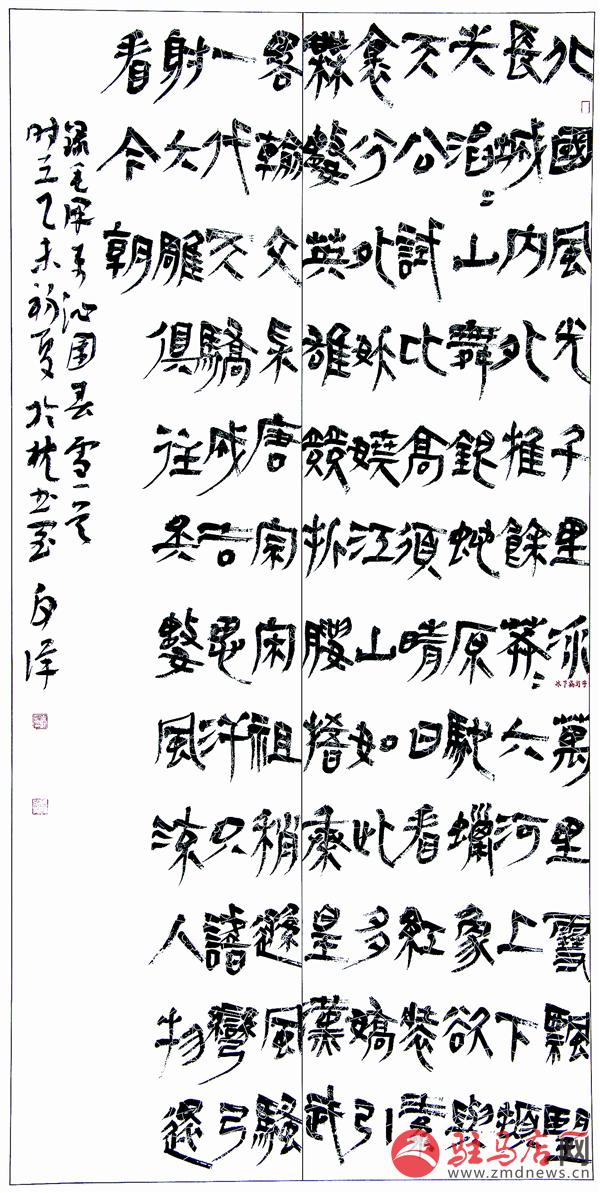 北國風光千里冰萬里雪飄望
冰下漏封字
長城內外惟餘莽〻大河上下頓
失滔〻山舞銀蛇原馳蠟象欲與
天公試比高須晴日看紅裝素
裹分外妖嬈江山如此多嬌引
無數英雄競折腰惜秦皇漢武
略輸文采唐宗宋祖稍遜風騷
一代天驕成吉思汗只識彎弓
射大雕俱往矣數風流人物還
看今朝
錄毛澤東沁園春雪一首
時在乙未初夏於
驻马店网
www.zmdnews.cn